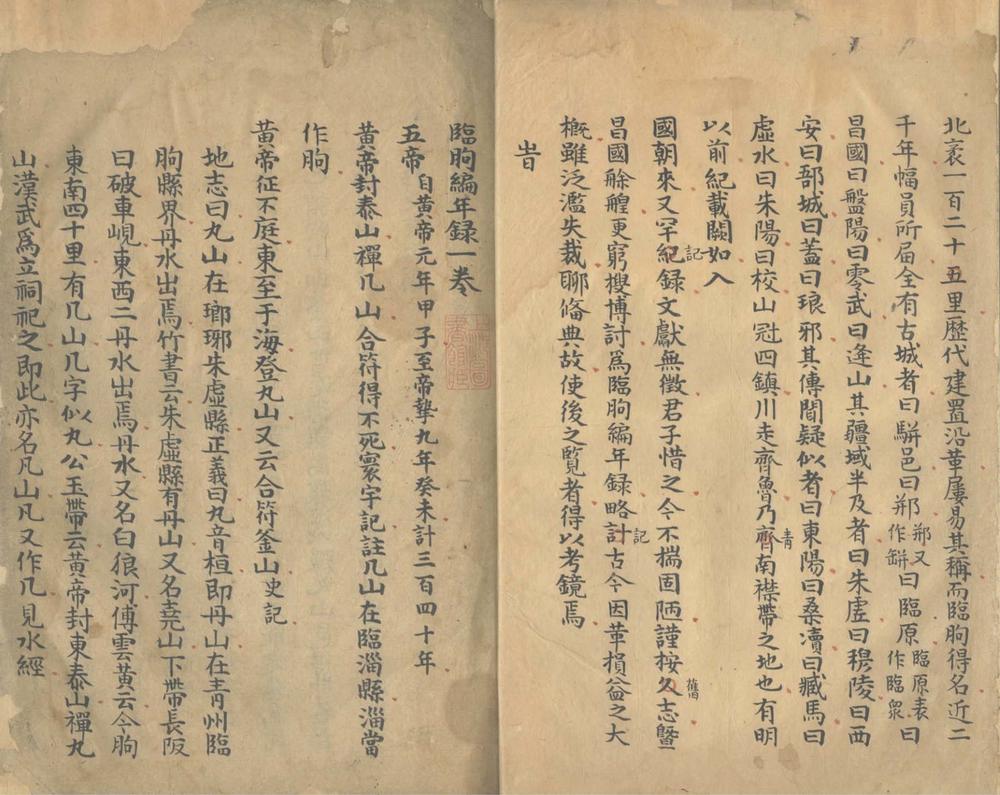 北袤一百二十五里歷代建置沿革屢易其稱而臨朐得名近二
千年幅員所届全有古城者曰駢邑曰郱郱又作缾曰臨原臨原表作臨衆曰
昌國曰盤陽曰零武曰逄山其疆域半及者曰朱虗曰穆陵曰西
安曰郚城曰蓋曰琅邪其傳聞疑似者曰東陽曰桑瀆曰臧馬曰
虗水曰朱陽曰校山冠四鎮川走齊魯乃齊青南襟帶之地也有明
以前紀載闕如入
國朝來又罕紀記録文獻無徵君子惜之今不揣固陋謹桉久舊志曁
昌國艅艎更窮搜博討爲臨朐編年録略計記古今因革損益之大
槪雖泛濫失裁聊俻典故使後之覽者得以考鏡焉
旹
臨朐編年録一卷
五帝自黄帝元年甲子至帝摯九年癸未計三百四十年
黄帝封泰山禪几山合符得不死寰宇記註几山在臨淄縣淄當
作朐
黄帝征不庭東至于海登丸山又云合符釜山史記
地志曰丸山在瑯琊朱虛縣正義曰丸音桓即丹山在青州臨
朐縣界丹水出焉竹書云朱虛縣有丹山又名堯山下帶長阪
曰破車峴東西二丹水出焉丹水又名白狼河傅雲黄云今朐
東南四十里有几山几字似丸公玉帶云黄帝封東泰山禪丸
山漢武爲立祠祀之即此亦名凡山凡又作几見水經